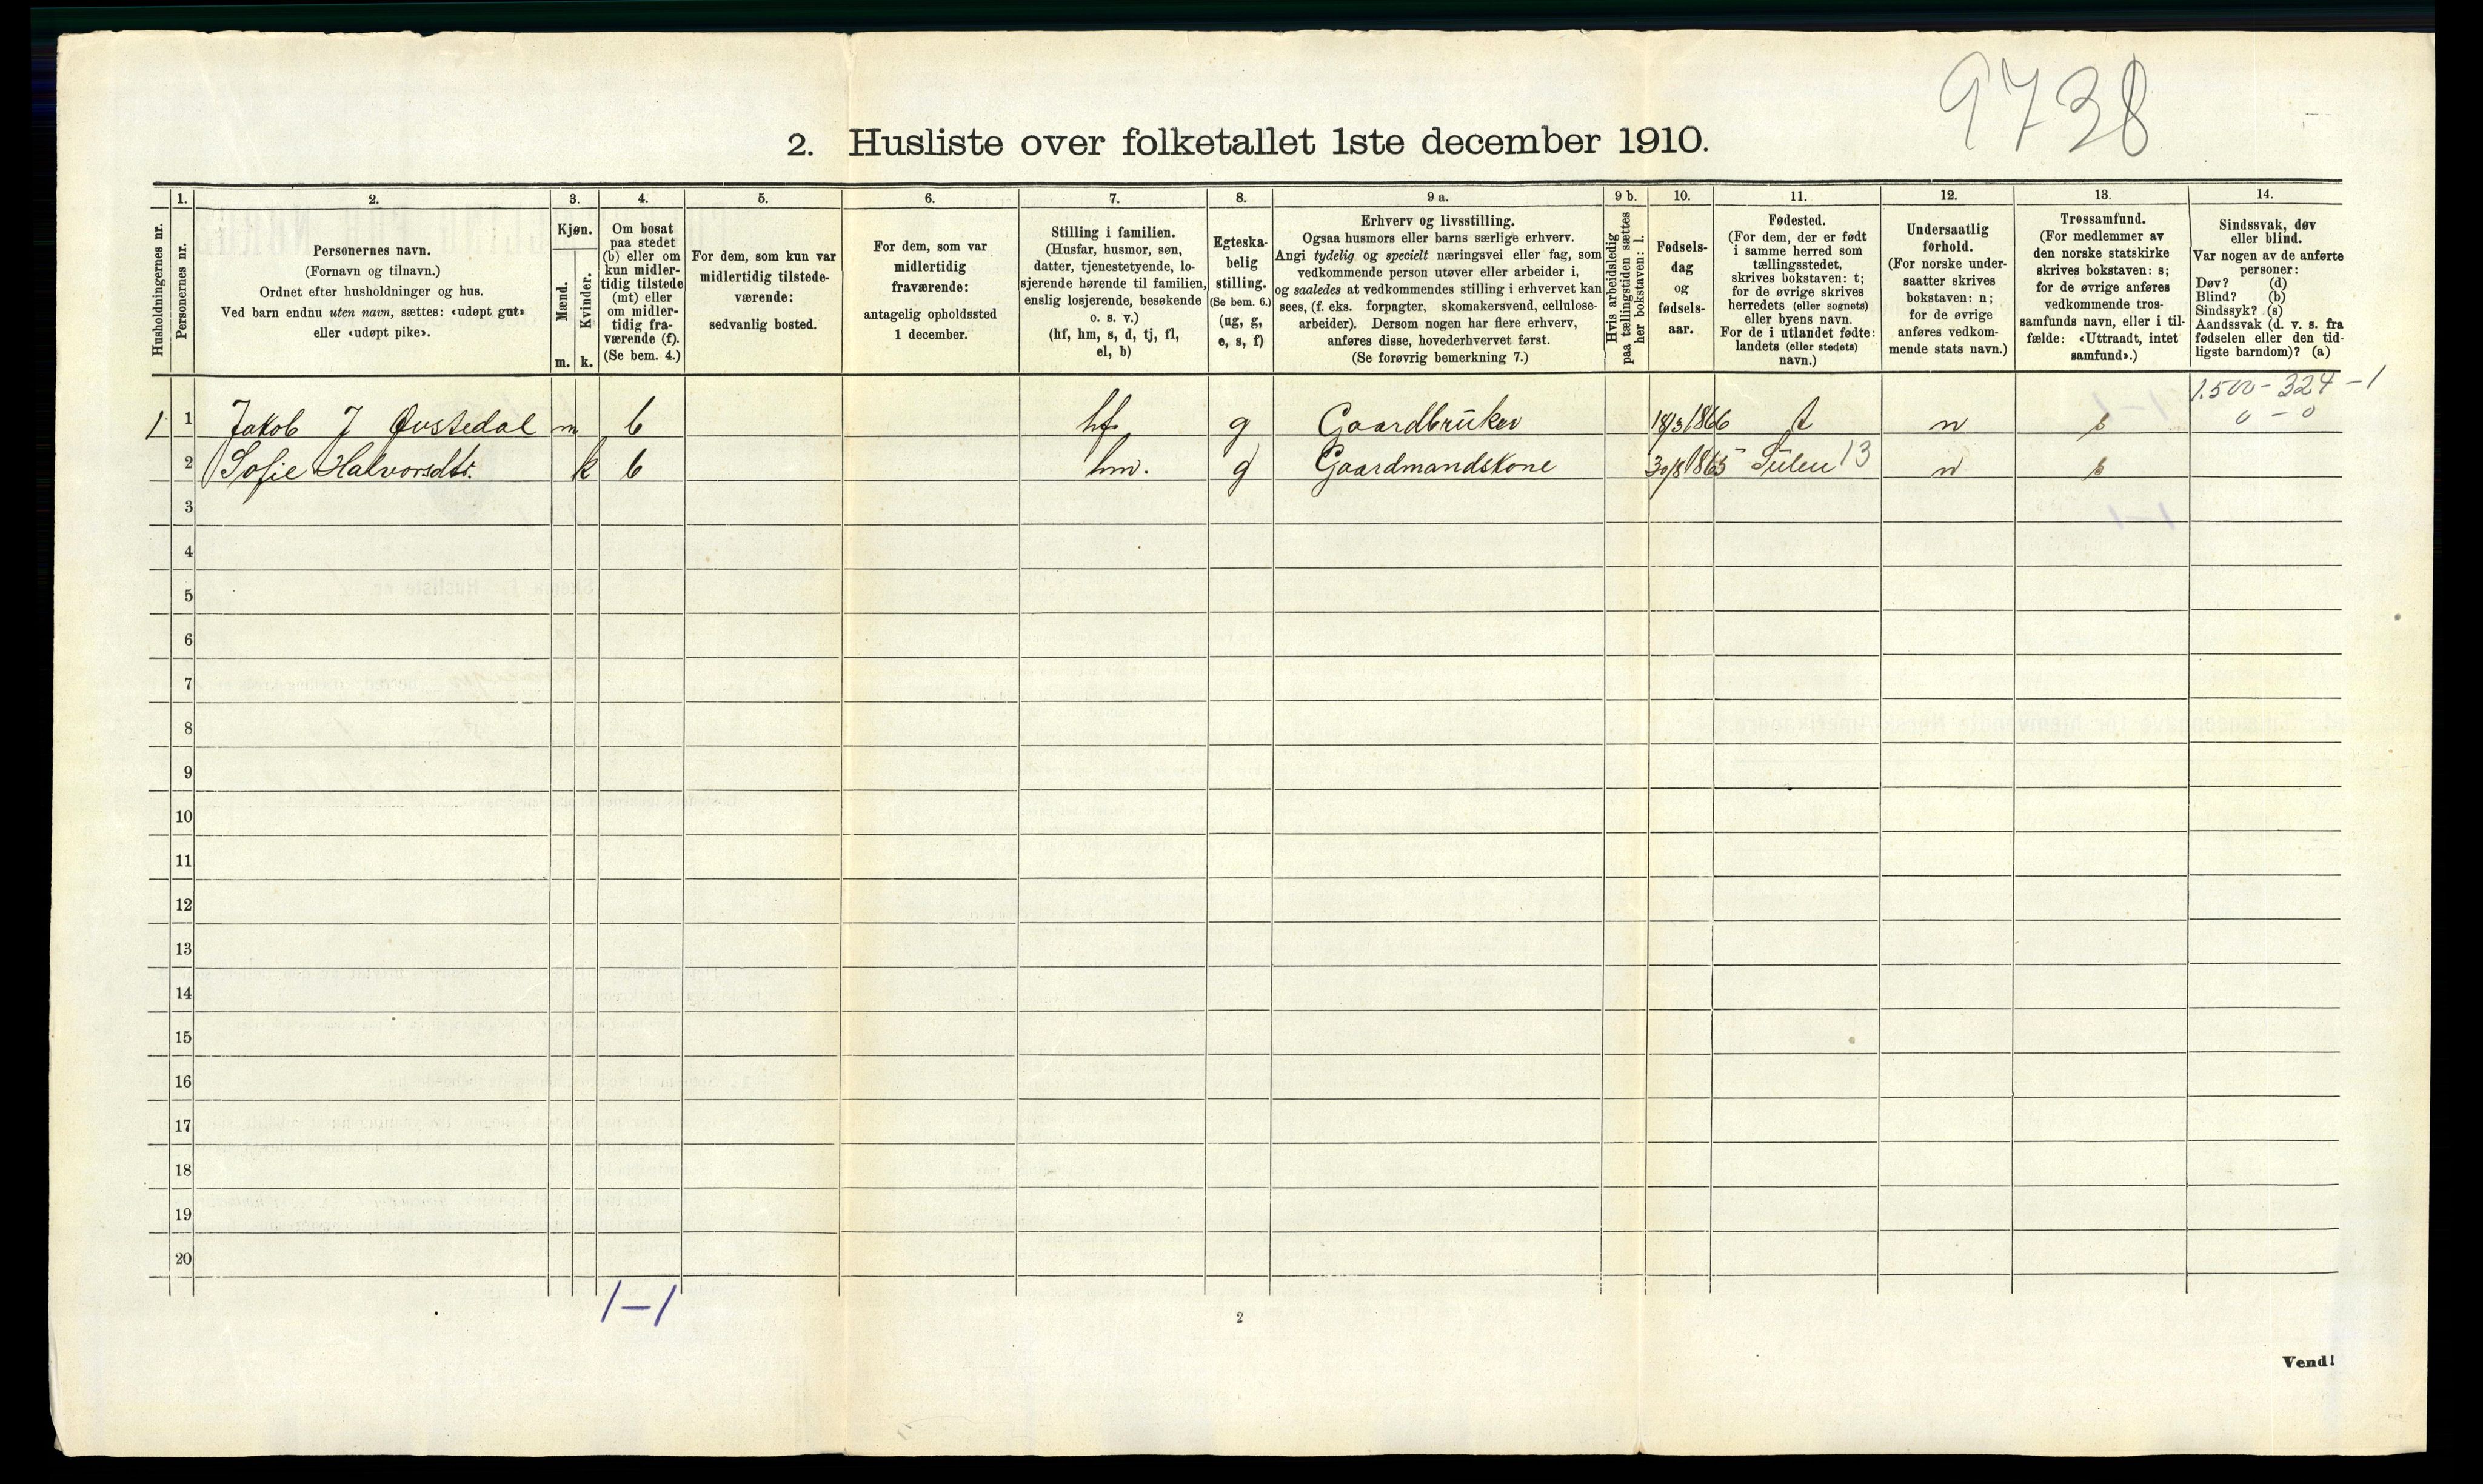 9738
2. Husliste over folketallet 1ste december 1910.
Husholdningernes nr.
1.
Personernes nr.
2.
Personernes navn.
(Fornavn og tilnavn.)
Ordnet efter husholdninger og hus.
Ved barn endnu uten navn, sættes: «udøpt gut»
eller «udøpt pike».
3.
Kjøn.
Mænd.
m.
Kvinder.
k.
4.
Om bosat
paa stedet
(b) eller om
kun midler-
tidig tilstede
(mt) eller
om midler-
tidig fra-
værende (f).
(Se bem. 4.)
5.
For dem, som kun var
midlertidig tilstede-
værende:
sedvanlig bosted.
6.
For dem, som var
midlertidig
fraværende:
antagelig opholdssted
1 december.
7.
Stilling i familien.
(Husfar, husmor, søn,
datter, tjenestetyende, lo-
sjerende hørende til familien,
enslig losjerende, besøkende
o. s. v.)
(hf, hm, s, d, tj, fl,
el, b)
8.
Egteska-
belig
stilling.
(Se bem. 6.)
(ug, g,
e, s, f)
9 a.
Erhverv og livsstilling.
Ogsaa husmors eller barns særlige erhverv.
Angi tydelig og specielt næringsvei eller fag, som
vedkommende person utøver eller arbeider i,
og saaledes at vedkommendes stilling i erhvervet kan
sees, (f. eks. forpagter, skomakersvend, cellulose-
arbeider). Dersom nogen har flere erhverv,
anføres disse, hovederhvervet først.
(Se forøvrig bemerkning 7.)
9 b.
Hvis arbeidsledig
paa tællingstiden sættes
her bokstaven: l.
10.
Fødsels-
dag
og
fødsels-
aar.
11.
Fødested.
(For dem, der er født
i samme herred som
tællingsstedet,
skrives bokstaven: t;
for de øvrige skrives
herredets (eller sognets)
eller byens navn.
For de i utlandet fødte:
landets (eller stedets)
navn.)
12.
Undersaatlig
forhold.
(For norske under-
saatter skrives
bokstaven: n;
for de øvrige
anføres vedkom-
mende stats navn.)
13.
Trossamfund.
(For medlemmer av
den norske statskirke
skrives bokstaven: s;
for de øvrige anføres
vedkommende tros-
samfunds navn, eller i til-
fælde: «Uttraadt, intet
samfund».)
14.
Sindssvak, døv
eller blind.
Var nogen av de anførte
personer:
Døv? (d)
Blind? (b)
Sindssyk? (s)
Aandssvak (d. v. s. fra
fødselen eller den tid-
ligste barndom)? (a)
1.500 - 324 - 1
0 - 0
1 1 Jakob J Øvstedal m b hf g Gaardbruker 18/3 1866 t n s
2 Sofie Halvorsdtr. k b hm. g Gaardmandskone 30/8 1865 Sulen 13 n s
3
4
5
6
7
8
9
10
11
12
13
14
15
16
17
18
19
20
1-1
2
Vend!